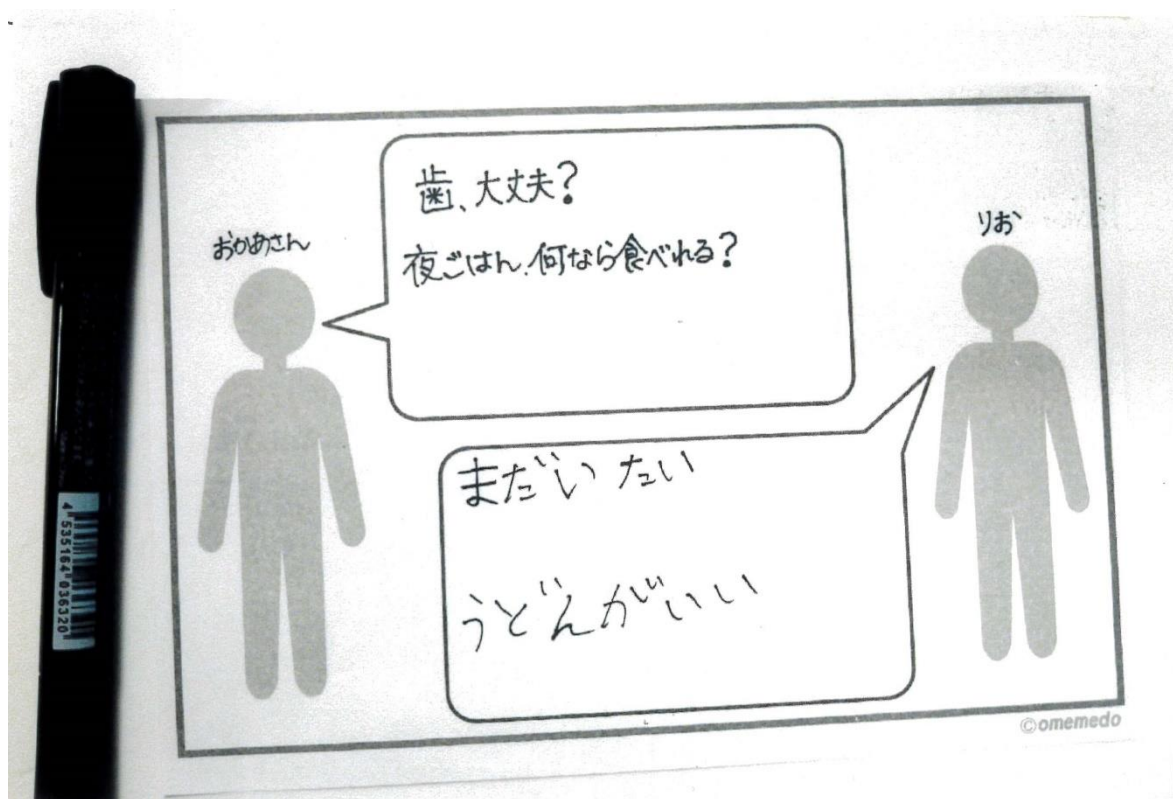 おかあさん
歯、大丈夫?
夜ごはん、何なら食べれる?
りお
まだいたい
うどんがいい
©omemedo
4 535164 036320